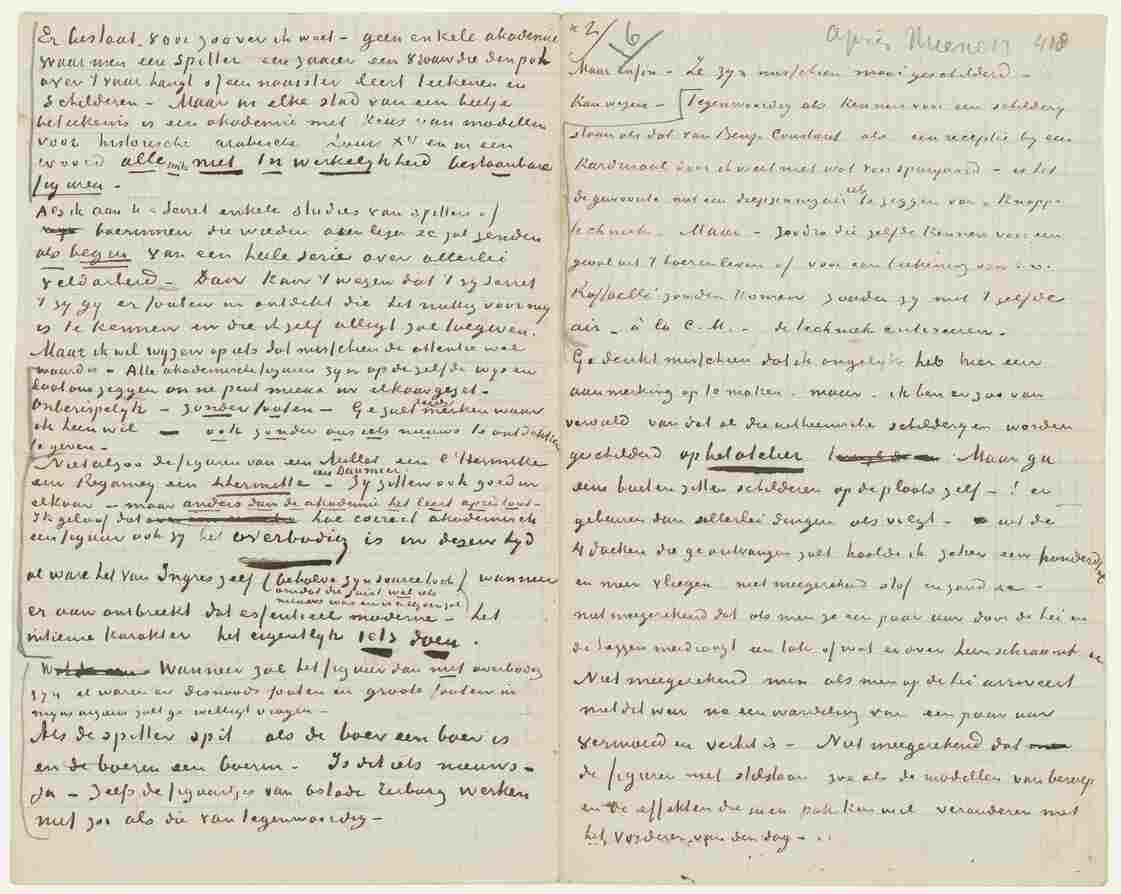 Er bestaat, voor zoover ik weet – geen enkele akademie
waar men een spitter een zaaier een vrouw die den pot
over 't vuur hangt of een naaister leert teekenen en
schilderen – Maar in elke stad van een beetje
beteekenis is een akademie met keus van modellen
voor historische arabische Louis XV en in een
woord alle mits niet in werkelijkheid bestaanbare
figuren –
Als ik aan U & Serret enkele studies van spitters of
boerinnen die wieden aren lezen &c zal zenden
als begin van een heele serie over allerlei
veldarbeid – Dan kan 't wezen dat 't zij Serret
't zij gij er fouten in ontdekt die het nuttig voor mij
is te kennen en die ik zelf alligt zal toegeven.
Maar ik wil wijzen op iets dat misschien de attentie wel
waard is – Alle akademische figuren zijn op dezelfde wijs en
laat ons zeggen on ne peut mieux in elkaar gezet –
Onberispelijk – zonder fouten – Ge zult reeds merken waar
ik heen wil – ook zonder ons iets nieuws te ontdekken
te geven –
Niet alzoo de figuren van een Millet een L'hermitte
een Regamey een Lhermitte een Daumier – Zij zitten ook goed in
elkaar – maar anders dan de akademie het leert après tout –
Ik geloof dat hoe correct akademisch
een figuur ook zij het overbodig is in dezen tijd
al ware het van Ingres zelf (behalve zijn source toch wanneer
omdat die juist wel iets
nieuws was en is & zijn zal)
er aan ontbreekt dat essentieel moderne – het
intieme karakter het eigentlijk iets doen.
Wanneer zal het figuur dan niet overbodig
zijn al waren er desnoods fouten en groote fouten in
mijns inziens zult ge wellicht vragen –
Als de spitter spit als de boer een boer is
en de boerin een boerin – Is dit iets nieuws –
ja – zelfs de figuurtjes van Ostade Terburg werken
niet zoo als die van tegenwoordig –
x 2/ 6 après Nuenen 418
Maar enfin – Ze zijn misschien mooi geschilderd –
Kan wezen – Tegenwoordig als kenners voor een schilderij
staan als dat van Benj. Constant als een receptie bij een
kardinaal door ik weet niet wat voor spanjaard – is het
de gewoonte met een diepzinnig air iets te zeggen van "knappe
techniek. Maar – zoodra diezelfde kenners voor een
geval uit 't boerenleven of voor een teekening van v.v.
Raffaelli zouden komen zouden zij met 't zelfde
air – à la C.M. – de techniek critiseeren –
Ge denkt misschien dat ik ongelijk heb hier een
aanmerking op te maken. maar. ik ben er zoo van
vervuld van dat al die uitheemsche schilderijen worden
geschilderd op het atelier Maar ga
eens buiten zitten schilderen op de plaats zelf – ! er
gebeuren dan allerlei dingen als volgt – uit de
4 doeken die ge ontvangen zult haalde ik zeker een honderd
en meer vliegen niet meegerekend stof en zand &c –
niet meegerekend dat als men ze een paar uur door de hei en
de heggen meedraagt een tak of wat er over heen schraamt &c
Niet meegerekend men als men op de hei arriveert
met dit weer na een wandeling van een paar uur
vermoeid en verhit is – Niet meegerekend dat
de figuren niet stilstaan zoo als de modellen van beroep
en de effekten die men pakken wil veranderen met
het vorderen van den dag – ..